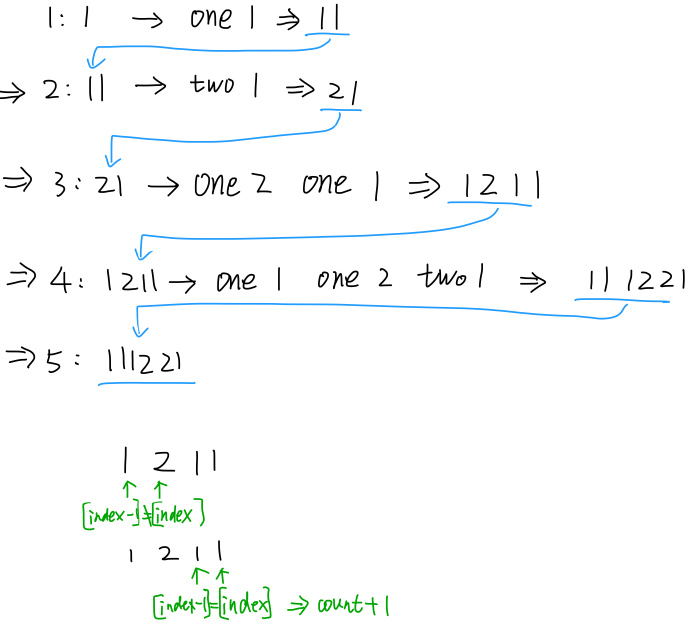 1: 1 → one 1 ⇒ 11
⇒ 2: 11 → two 1 ⇒ 21
⇒ 3: 21 → one 2 one 1 ⇒ 1211
⇒ 4: 1211 → one 1 one 2 two 1 ⇒ 111221
⇒ 5: 111221
1 2 1 1
[index-1]≠[index]
1 2 1 1
[index-1]=[index] ⇒ count+1